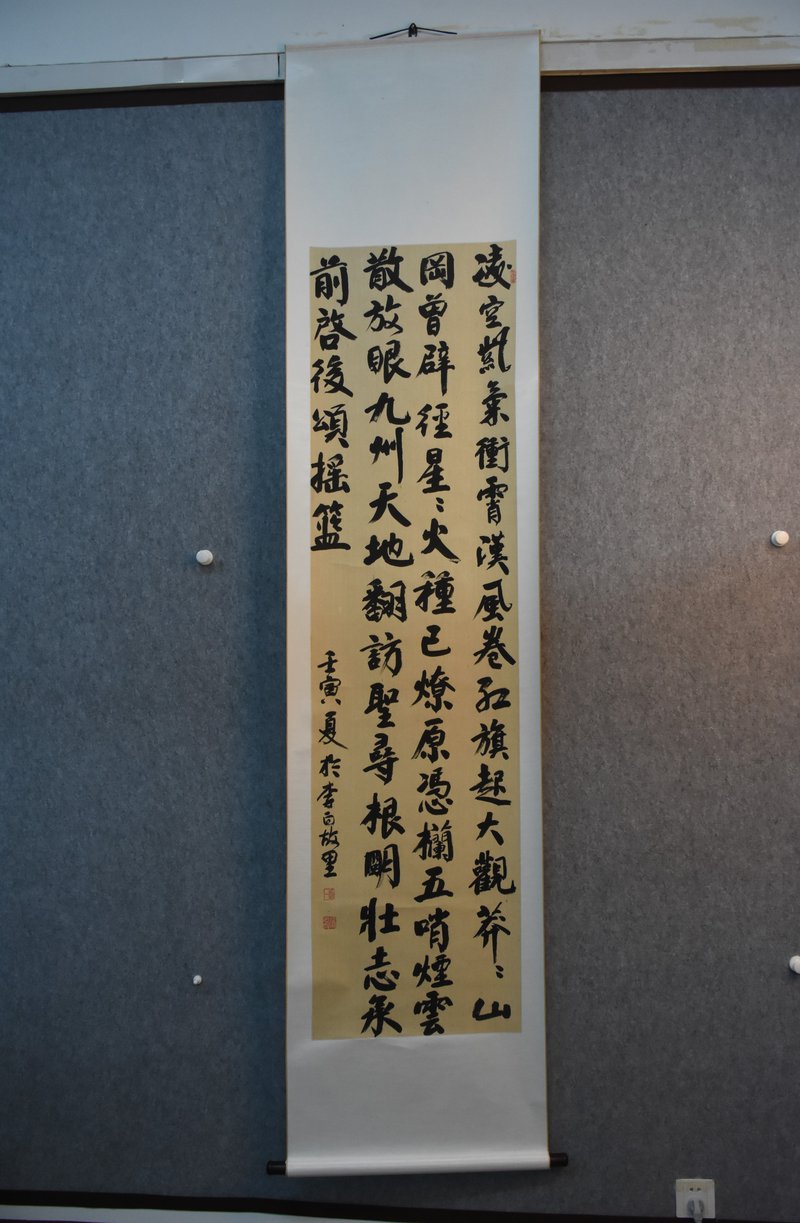 凌空紫氣衝霄漢風卷红旗起大觀莽〻山
岡曾辟徑星〻火種已燎原憑欄五哨煙雲
散放眼九州天地翻訪聖尋根明壯志承
前啓後頌摇籃
壬寅夏於李白故里